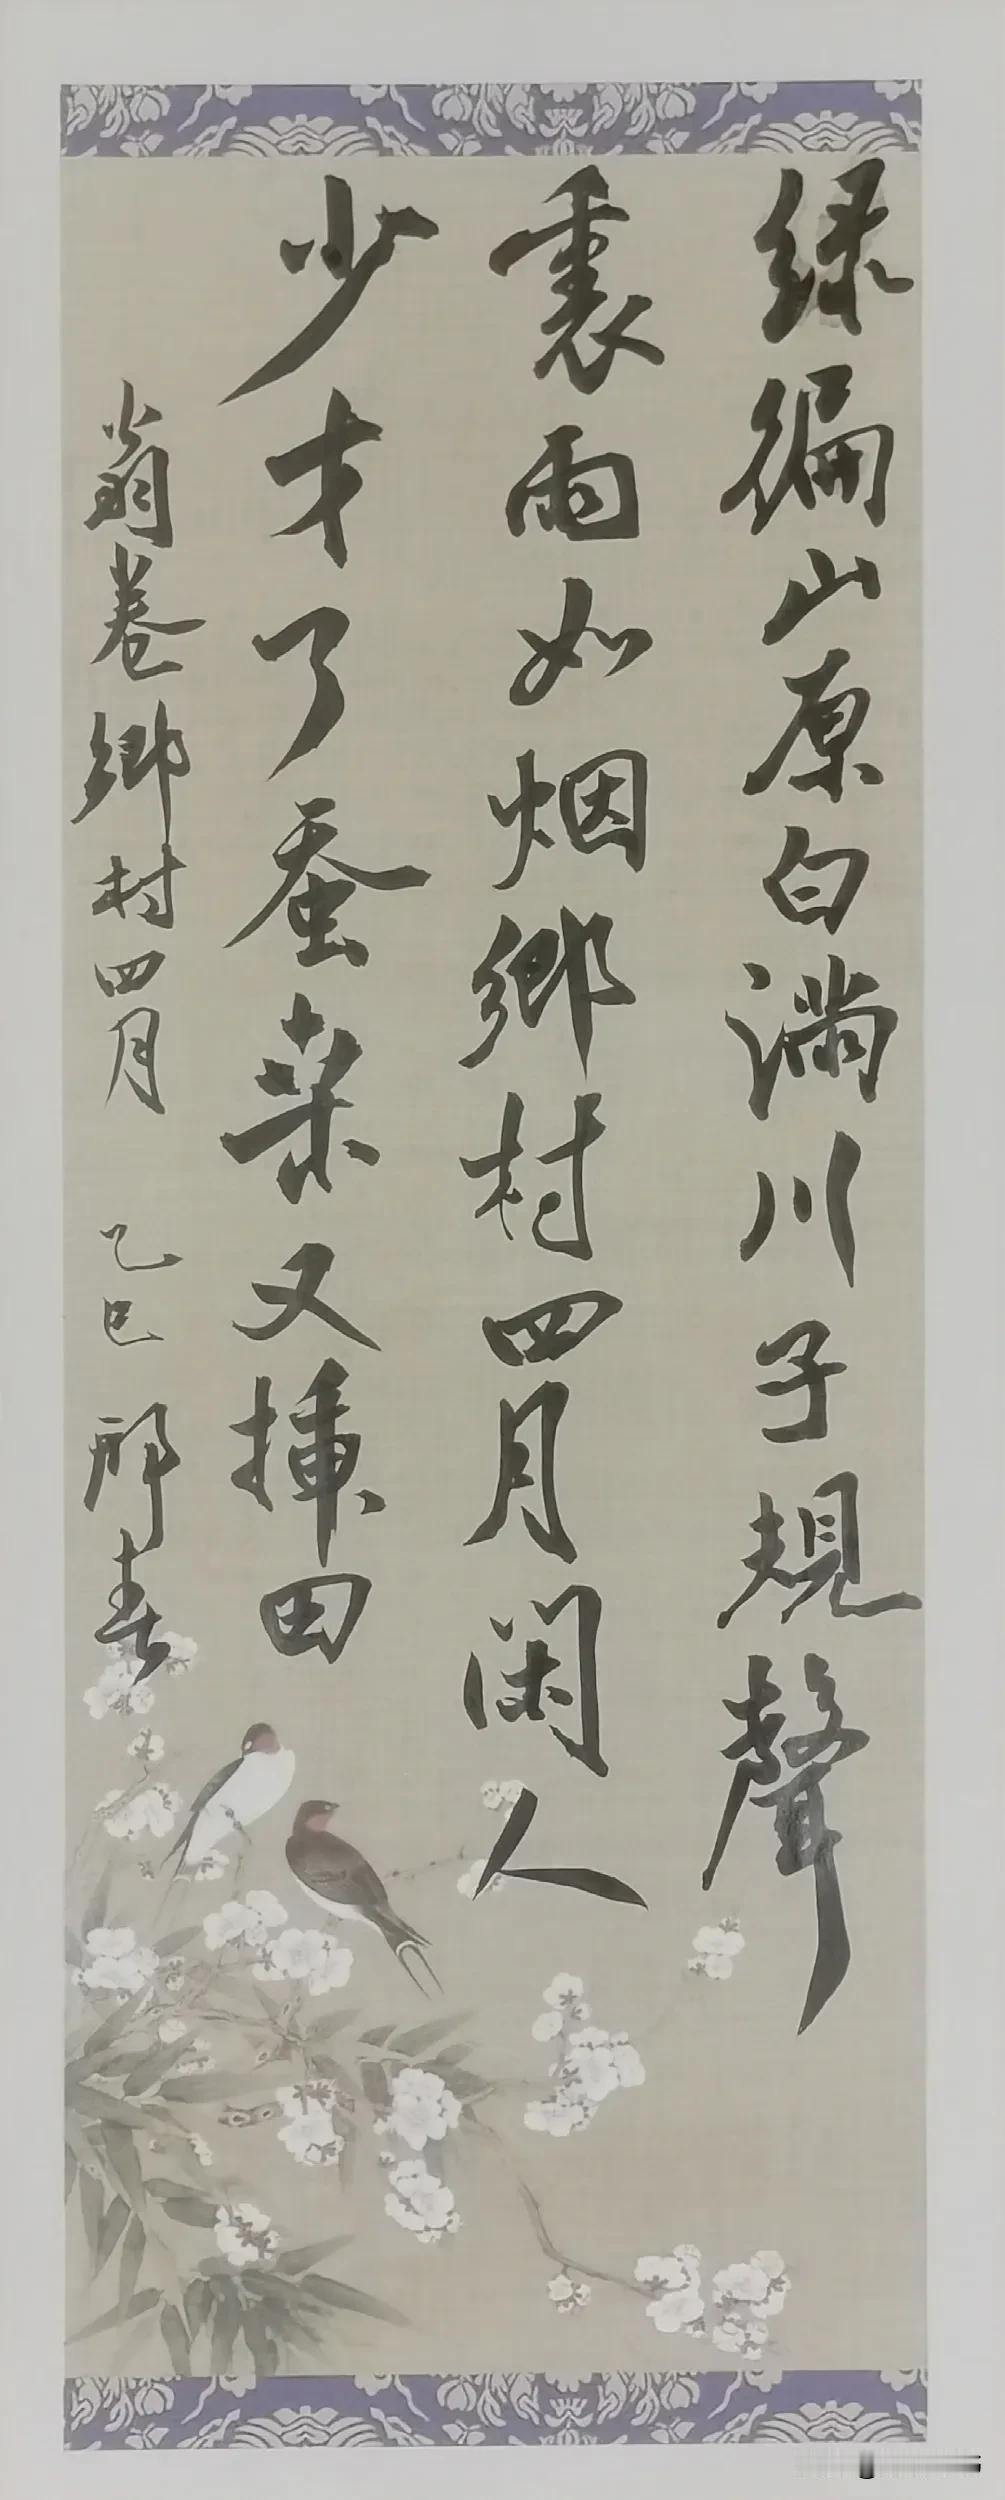 绿徧山原白满川子規聲
裏雨如烟鄉村四月闲人
少才了蚕桒又插田
翁卷鄉村四月 乙巳 邢春